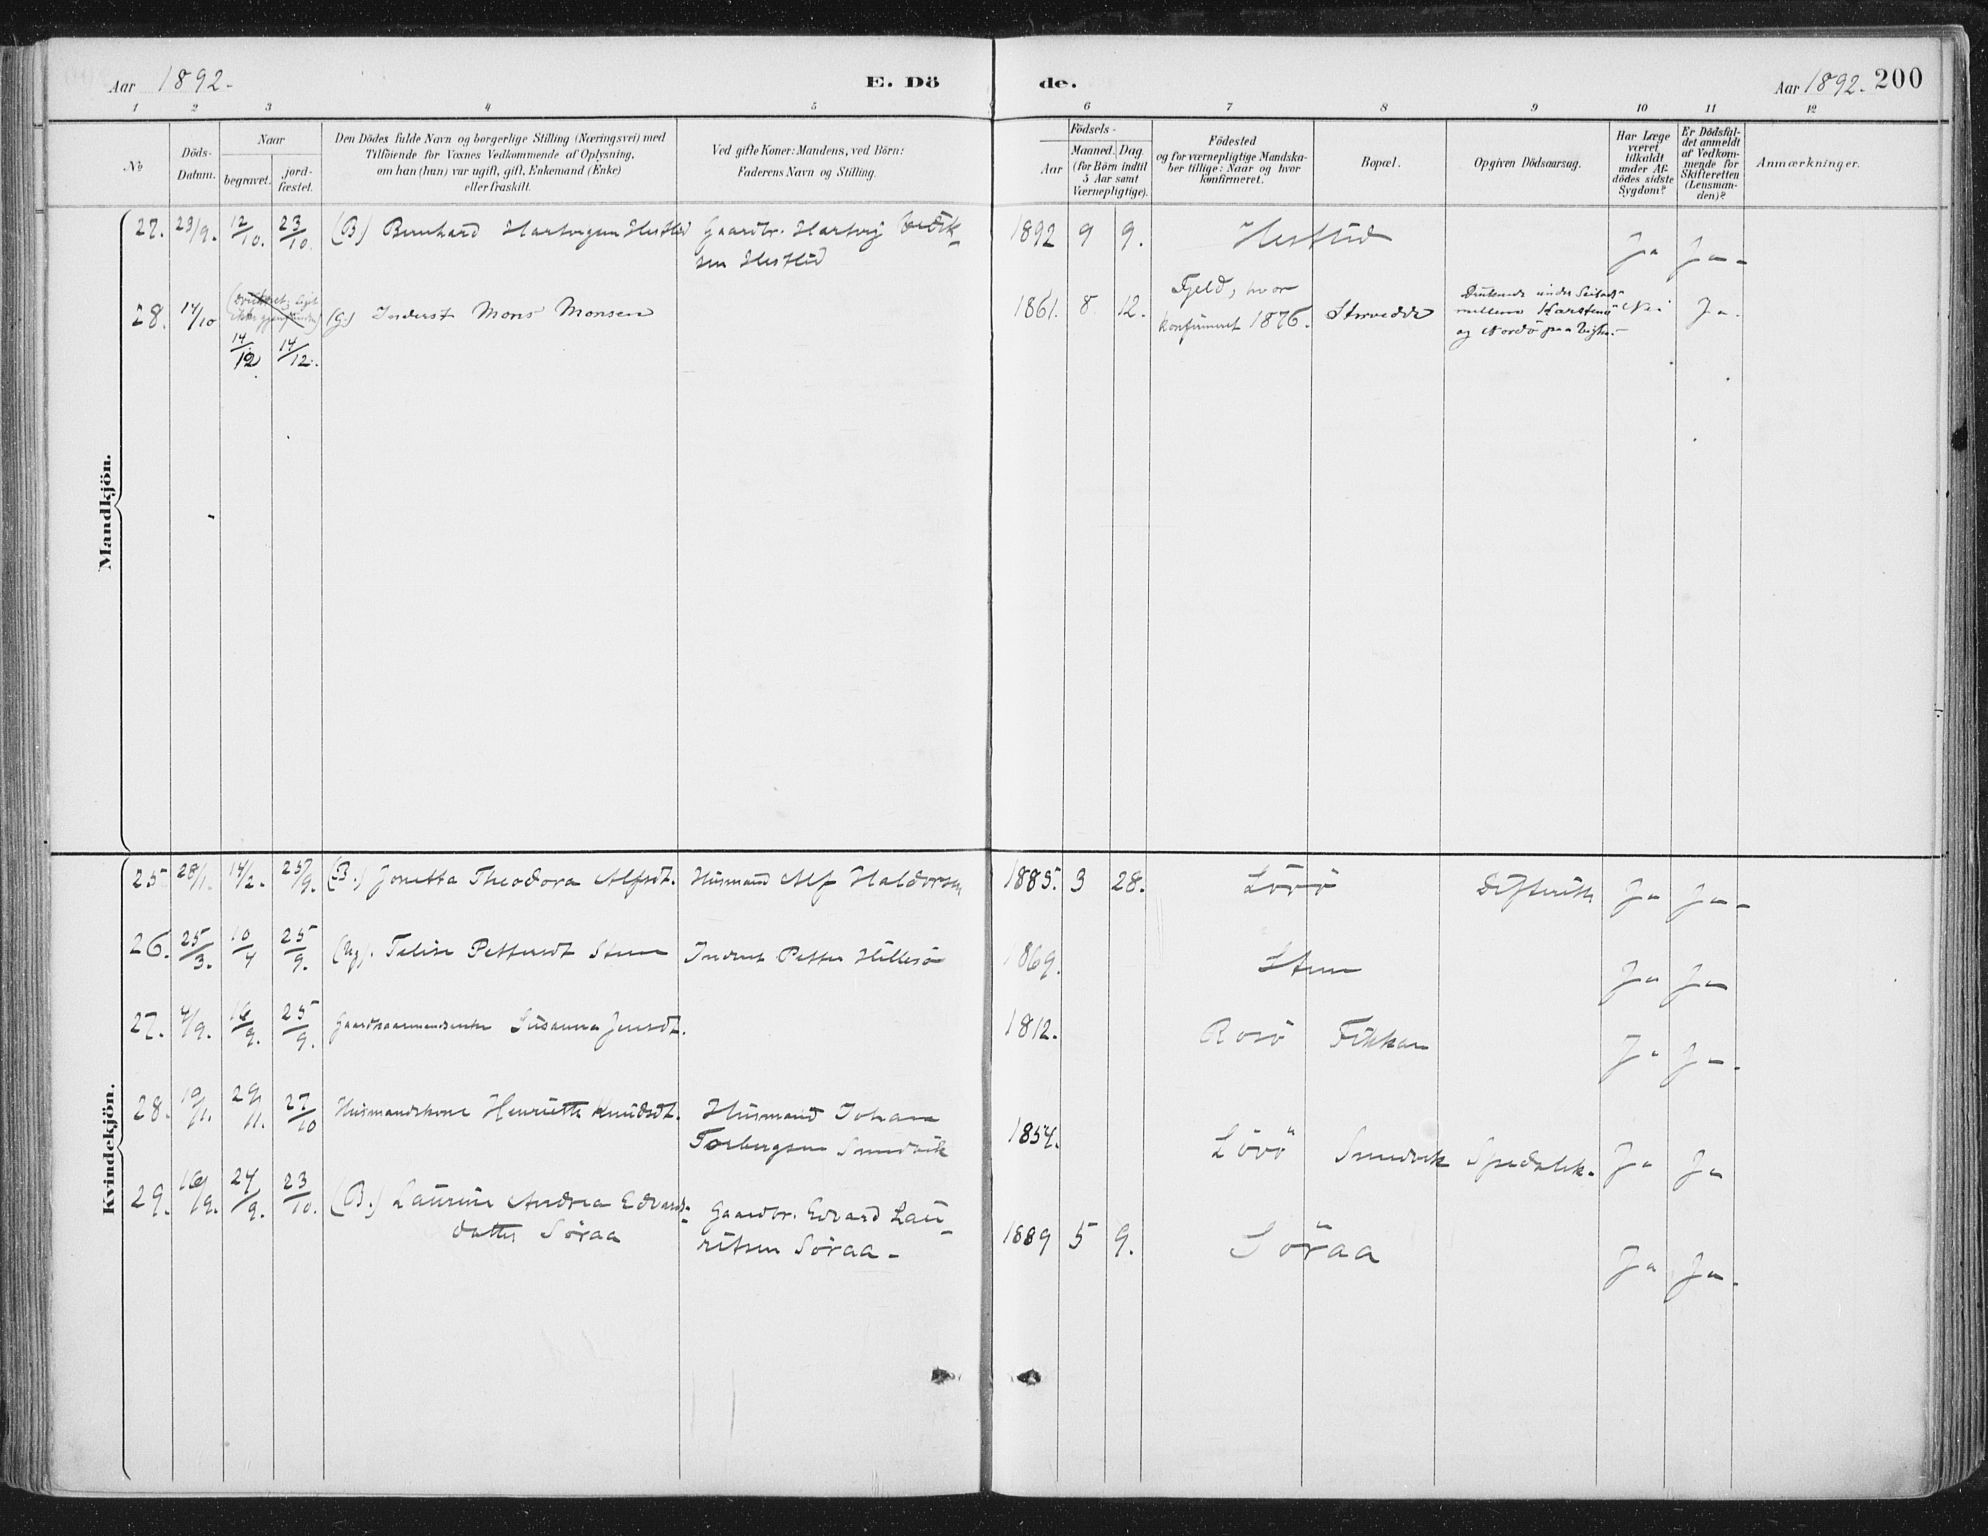 Aar 1892. E. Dö de. Aar 1892. 200
1 2 3 4 5 6 7 8 9 10 11 12
№ Döds-Datum. Naar begravet. jord-fæstet. Den Dödes fulde Navn og borgerlige Stilling (Næringsvei) med Tilföiende for Voxnes Vedkommende af Oplysning, om han (hun) var ugift, gift, Enkemand (Enke) eller fraskilt. Ved gifte Koner: Mandens, ved Börn: Faderens Navn og Stilling. Födsels- Aar Maaned. Dag (for Börn indtil 5 Aar samt Værnepligtige). Födested og for værnepligtige Mandskaber tillige: Naar og hvor konfirmeret. Bopæl. Opgiven Dödsaarsag. Har Læge været tilkaldt under Afdödes sidste Sygdom? Er Dödsfaldet anmeldt af Vedkommende for Skifteretten (Lensmanden)? Anmærkninger.
Mandkjön.
27. 23/9. 12/10. 23/10. (B) Bernhard Hartvigsen Hestlid Gaardbr. Hartvig
sen Hestlid 1892 9 9. Hestlid Ja Ja
28. 14/10 14/12. 14/12. (G.) Inderst Mons Monsen 1861. 8. 12. Fjeld, hvor
konfirmeret 1876. Nei Ja.
og Nordö paa
Kvindekjön.
25 28/1. 14/2. 25/9. (B.) Jonetta Theodora Alfsdt. Husmand Alf Haldorsen 1885. 3 28. Lövö Difterit Ja Ja
26. 25/3. 10/4 25/9. (Ug). Pettersdt Inderst Petter Hillesö 1869. Ja Ja
27. 4/9. 16/9. 25/9. Susanna Jensdt. 1812. Rosö Ja Ja
28. 19/11. 29/11. 27/10 Husmandskone Henriette Knudsdt. Husmand Johan
Torbergsen Smedvik 1854. Lövö Smedvik Spedalsk. Ja Ja
29. 16/9. 24/9. 23/10. (B.) Laurine Andrea Edvards-
datter Söraa Gaardbr. Edvard Lau-
ritsen Söraa 1889 5 9. Söraa Ja Ja.